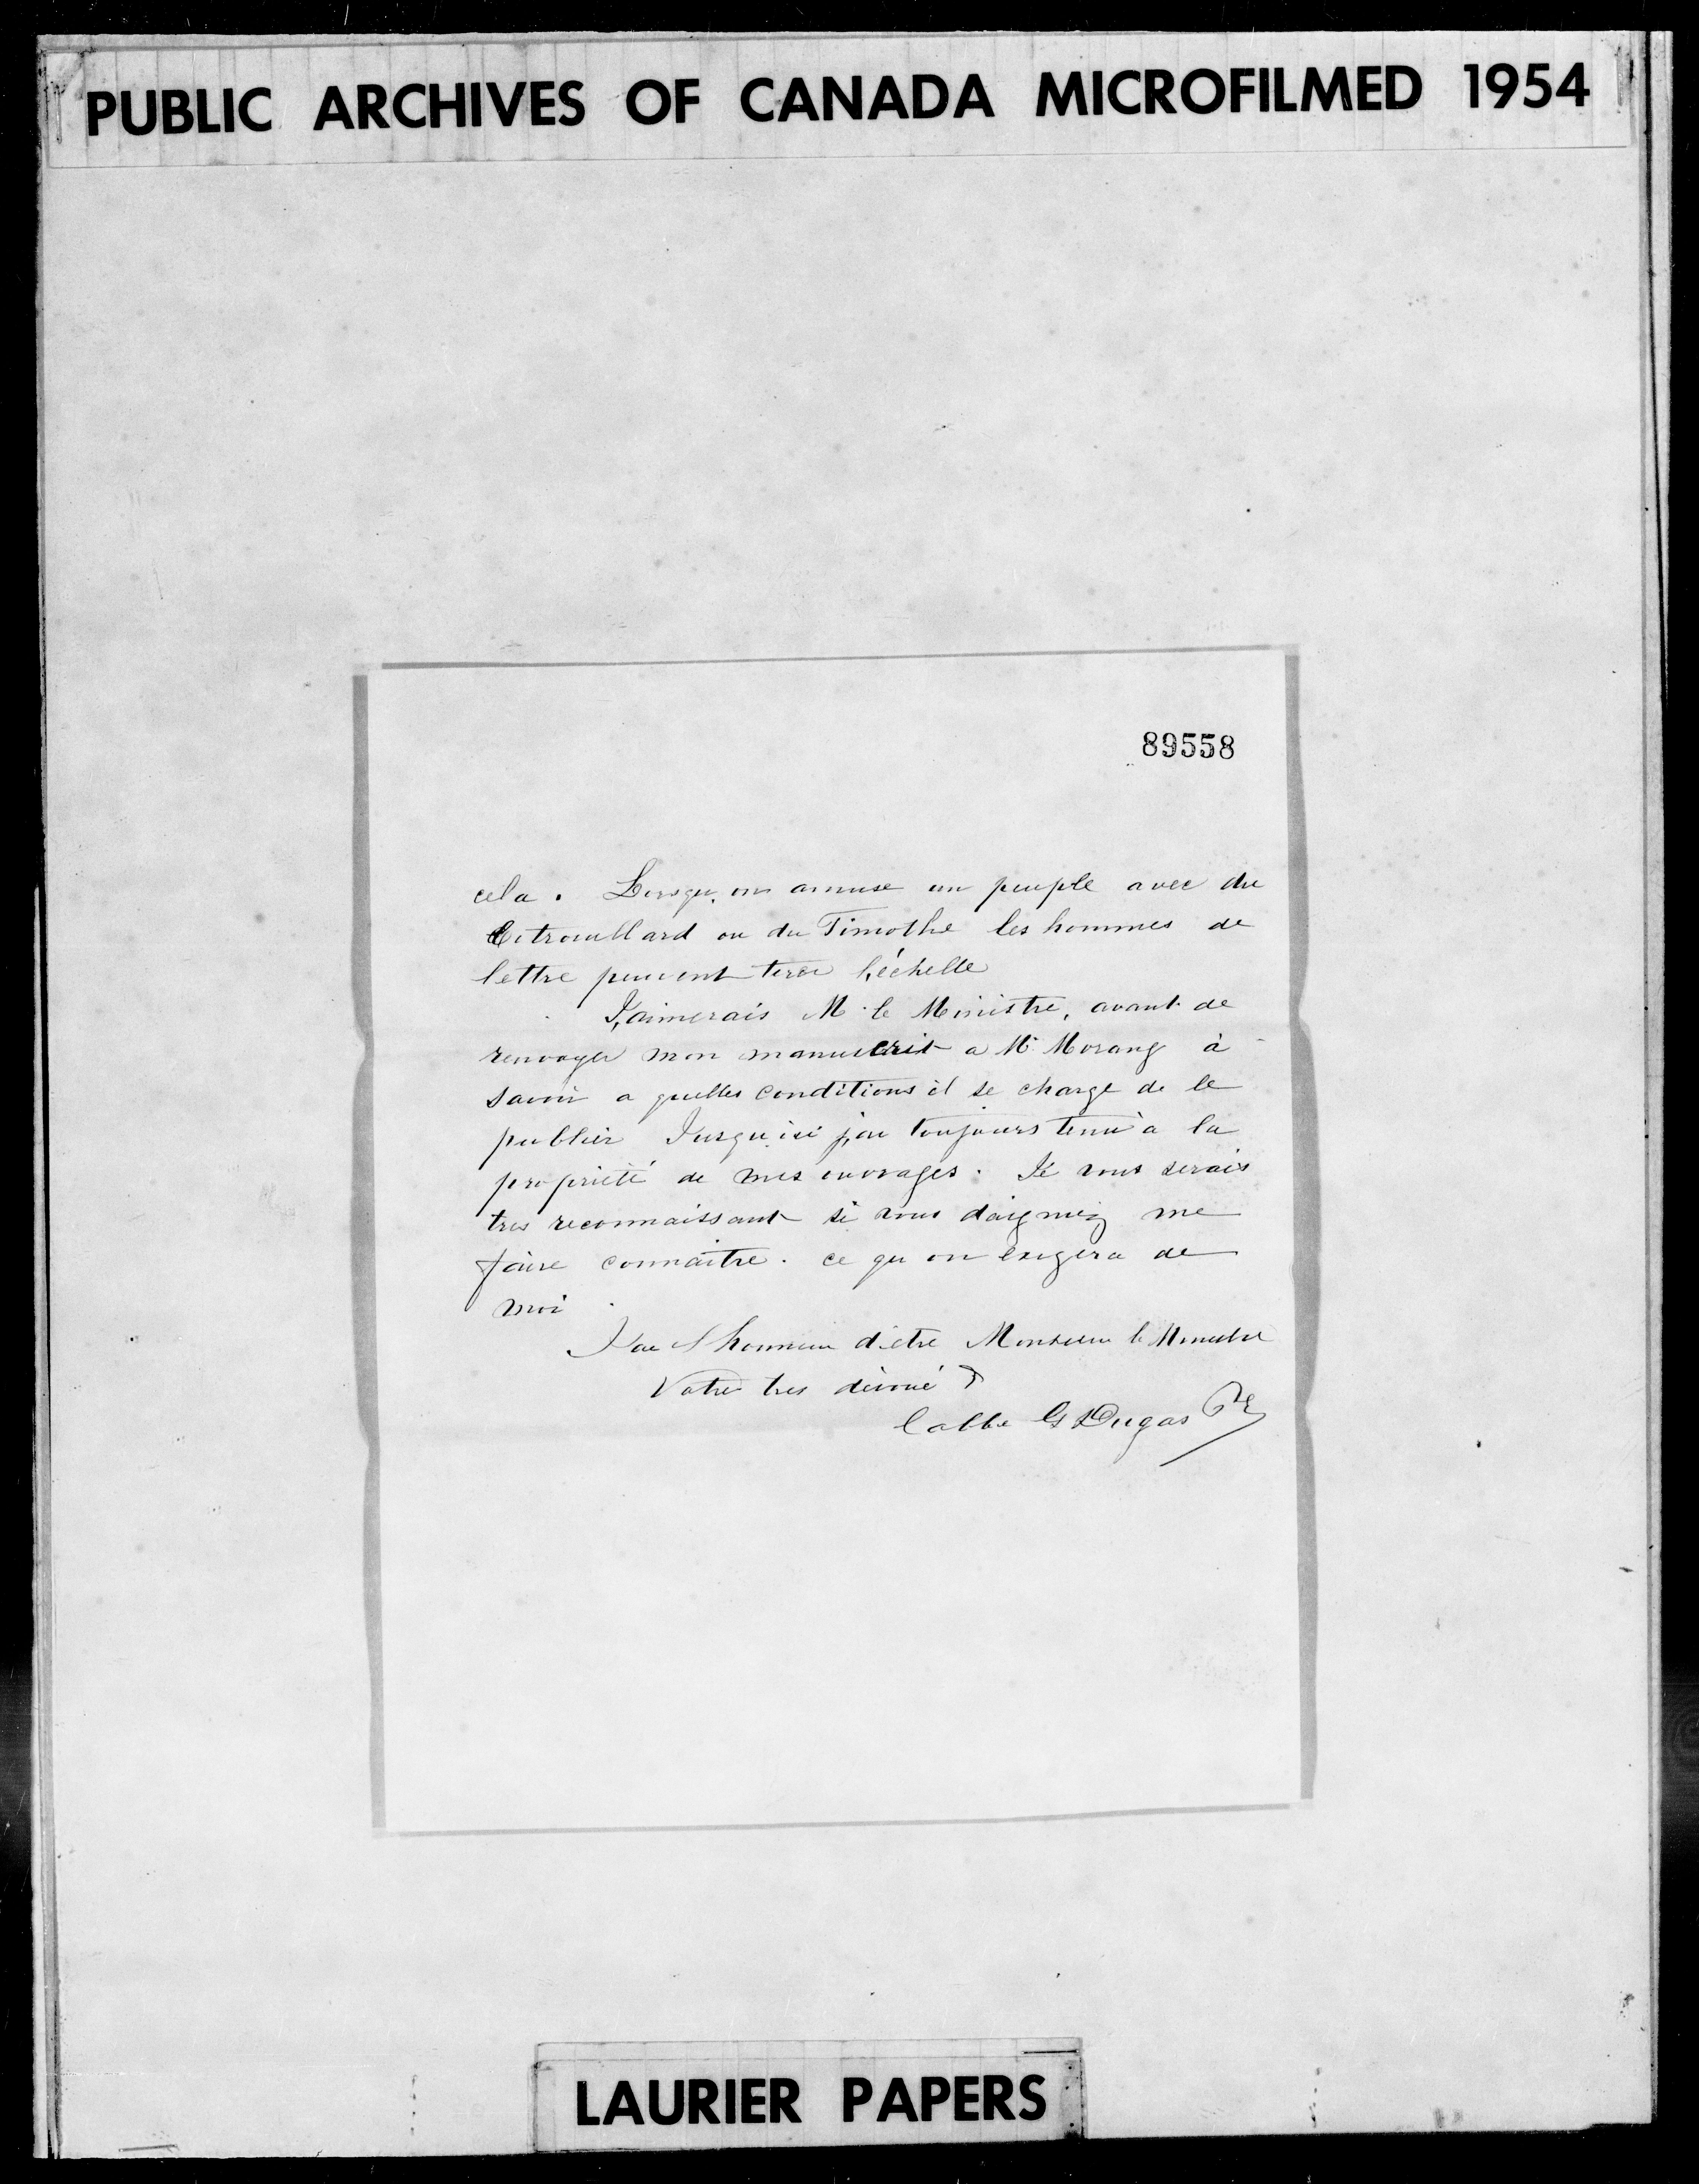 PUBLIC ARCHIVES OF CANADA MICROFILMED 1954
89558
cela. Lorsqu'on amuse un peuple avec du
Citrouillard ou du Timothe les hommes de
lettre peuvent tirer l'échelle
J'aimerais M. le Ministre, avant de
renvoyer mon manuscrit a Mr Morang à
savoir a quelles conditions il se charge de le
publier Jusqu'ici j'ai toujours tenu a la
propriété de mes ouvrages. Je vous serais
tres reconnaissant si vous daigniez me
faire connaître. ce qu on exigera de
moi
J'ai l honneur d'etre Monsieur le Ministre
Votre tres dévoué
l abbe G Dugas Ptre
LAURIER PAPERS